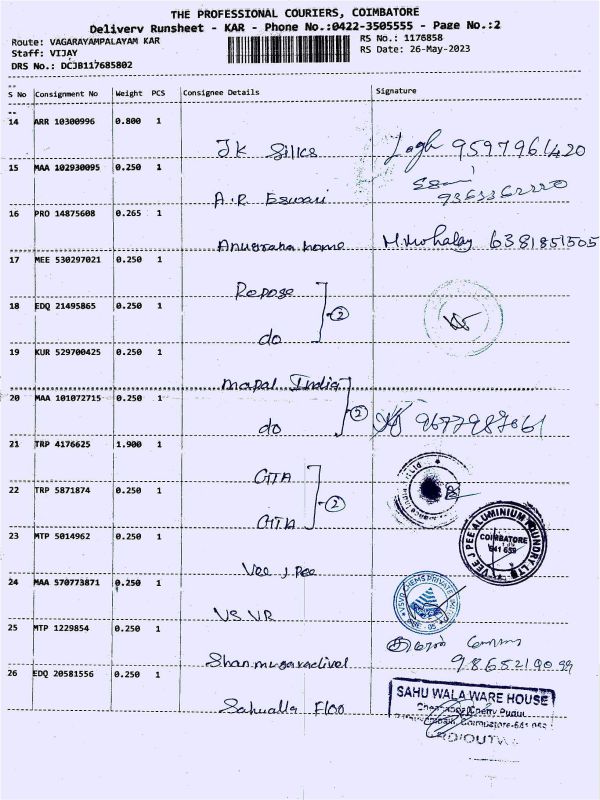 THE PROFESSIONAL COURIERS, COIMBATORE
Delivery Runsheet - KAR - Phone No.:0422-3505555 - Page No.:2
Route: VAGARAYAMPALAYAM KAR
RS No.: 1176858
Staff: VIJAY
RS Date: 26-May-2023
DRS No.: DCJB117685802
S No Consignment No Weight PCS Consignee Details Signature
14 ARR 10300996 0.800 1
JK Silks 9597961420
15 MAA 102930095 0.250 1
A.R Eswari
16 PRO 14875608 0.265 1
home 6381851505
17 MEE 530297021 0.250 1
Repose
2
18 EDQ 21495865 0.250 1
do
19 KUR 529700425 0.250 1
mapal India
20 MAA 101072715 0.250 1
2
do
21 TRP 4176625 1.900 1
GTA
22 TRP 5871874 0.250 1
2
GTA
23 MTP 5014962 0.250 1
VEE J PEE ALUMINIUM FOUNDRY
COIMBATORE
641 659
Vee J Pee
24 MAA 570773871 0.250 1
VSVR CHEMS PRIVATE
VSVR
25 MTP 1229854 0.250 1
Shanmugavadivel
26 EDQ 20581556 0.250 1
SAHU WALA WARE HOUSE
Coimbatore-641